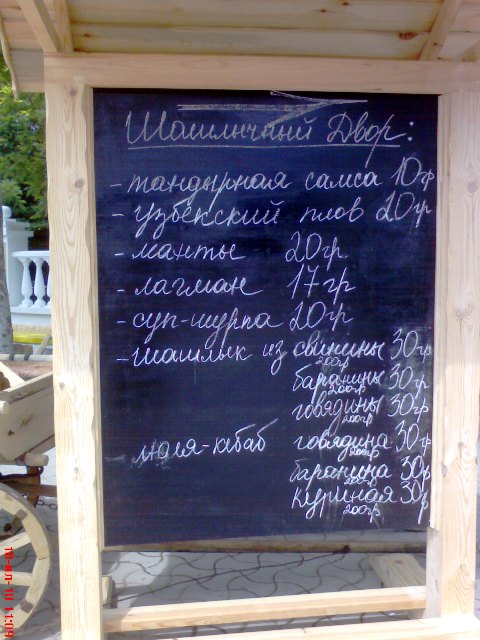 Шашлычный Двор:
- тандырная самса 10гр
- узбекский плов 20гр
- манты 20гр
- лагман 17гр
- суп-шурпа 20гр
- шашлык из свинины 30гр
200гр
баранины 30гр
200гр
говядины 30гр
200гр
люля-кебаб говядина 30гр
200гр
баранина 30гр
200гр
куриная 30гр
200гр